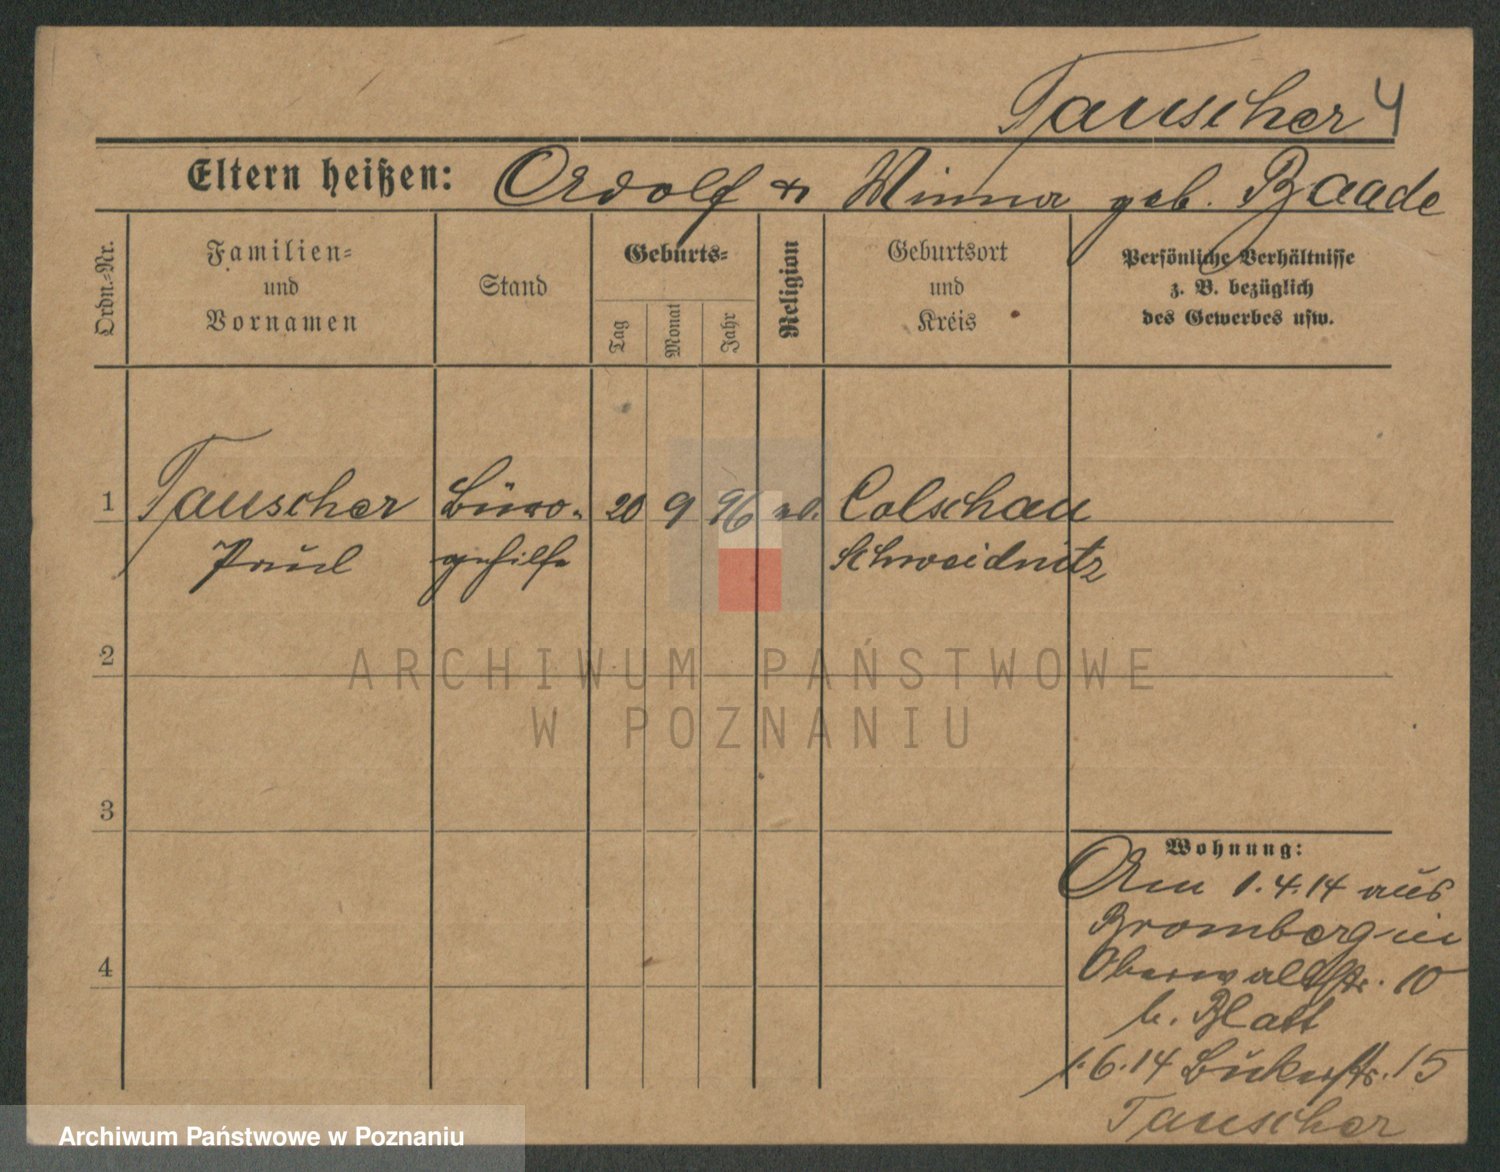 Tauscher 4
Eltern heißen: Adolf u Minna geb. Baade
Ordn.-Nr.
Familien-
und
Vornamen
Stand
Geburts-
Tag
Monat
Jahr
Religion
Geburtsort
und
Kreis
Persönliche Verhältnisse
z. B. bezüglich
des Gewerbes usw.
1 Tauscher Büro- 20 9 96 Colschau
Paul gehilfe Schweidnitz
2
3
4
Wohnung:
Am 1.4.14 aus
Bromberg in
Oberwallstr. 10
b. Blatt
1.6.14 Bukerstr. 15
Tauscher
ARCHIWUM PAŃSTWOWE
W POZNANIU
Archiwum Państwowe w Poznaniu